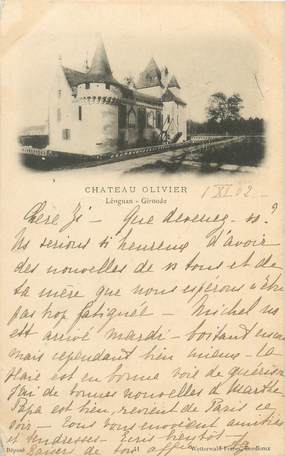 CHATEAU OLIVIER
Léognan - Gironde
1 XI 02
Chère - Que devenez-vs?
Ns serions si heureux d'avoir
des nouvelles de vs tous et de
ta mère que nous espérons n'être
pas trop fatiguée - Michel ns
est arrivé mardi - boitant encore
mais cependant bien mieux - la
plaie est en bonne voie de guérison
J'ai de bonnes nouvelles de Marthe
Papa est bien, revient de Paris ce
soir - Tous vous envoient amitiés
et tendresses
baisers de tout
Déposé 41 Wetterwald Frères, Bordeaux